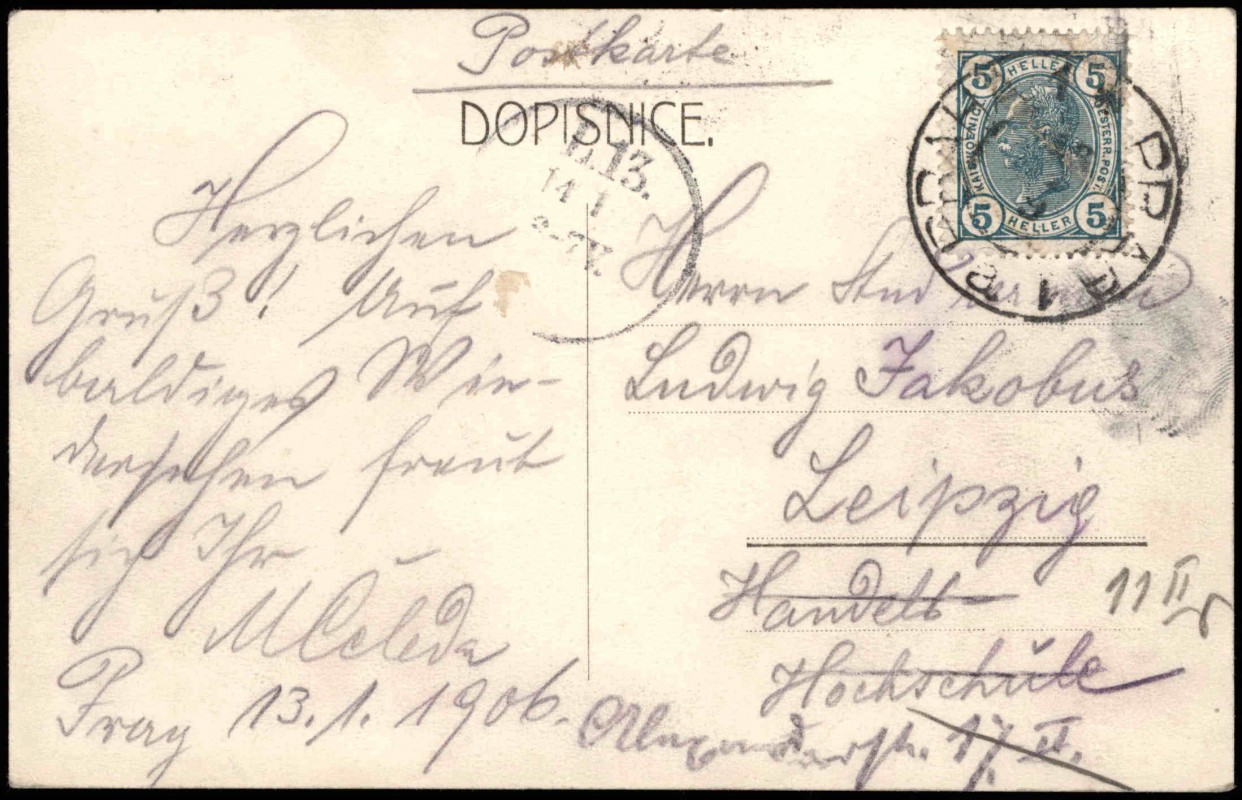 Postkarte
DOPISNICE.
5 HELLER 5
KAIS. KÖNIGL. OESTERR. POST.
5 HELLER 5
PRAG 1
L.13.
14 1
Herzlichen
Gruß! Auf
baldiges Wie-
dersehen freut
sich Ihr
MČeleda
Prag 13.1.1906.
Herrn Stud
Ludwig Jakobus
Leipzig
Handels
Hochschule
11 II r
Alexanderstr. 17. II.